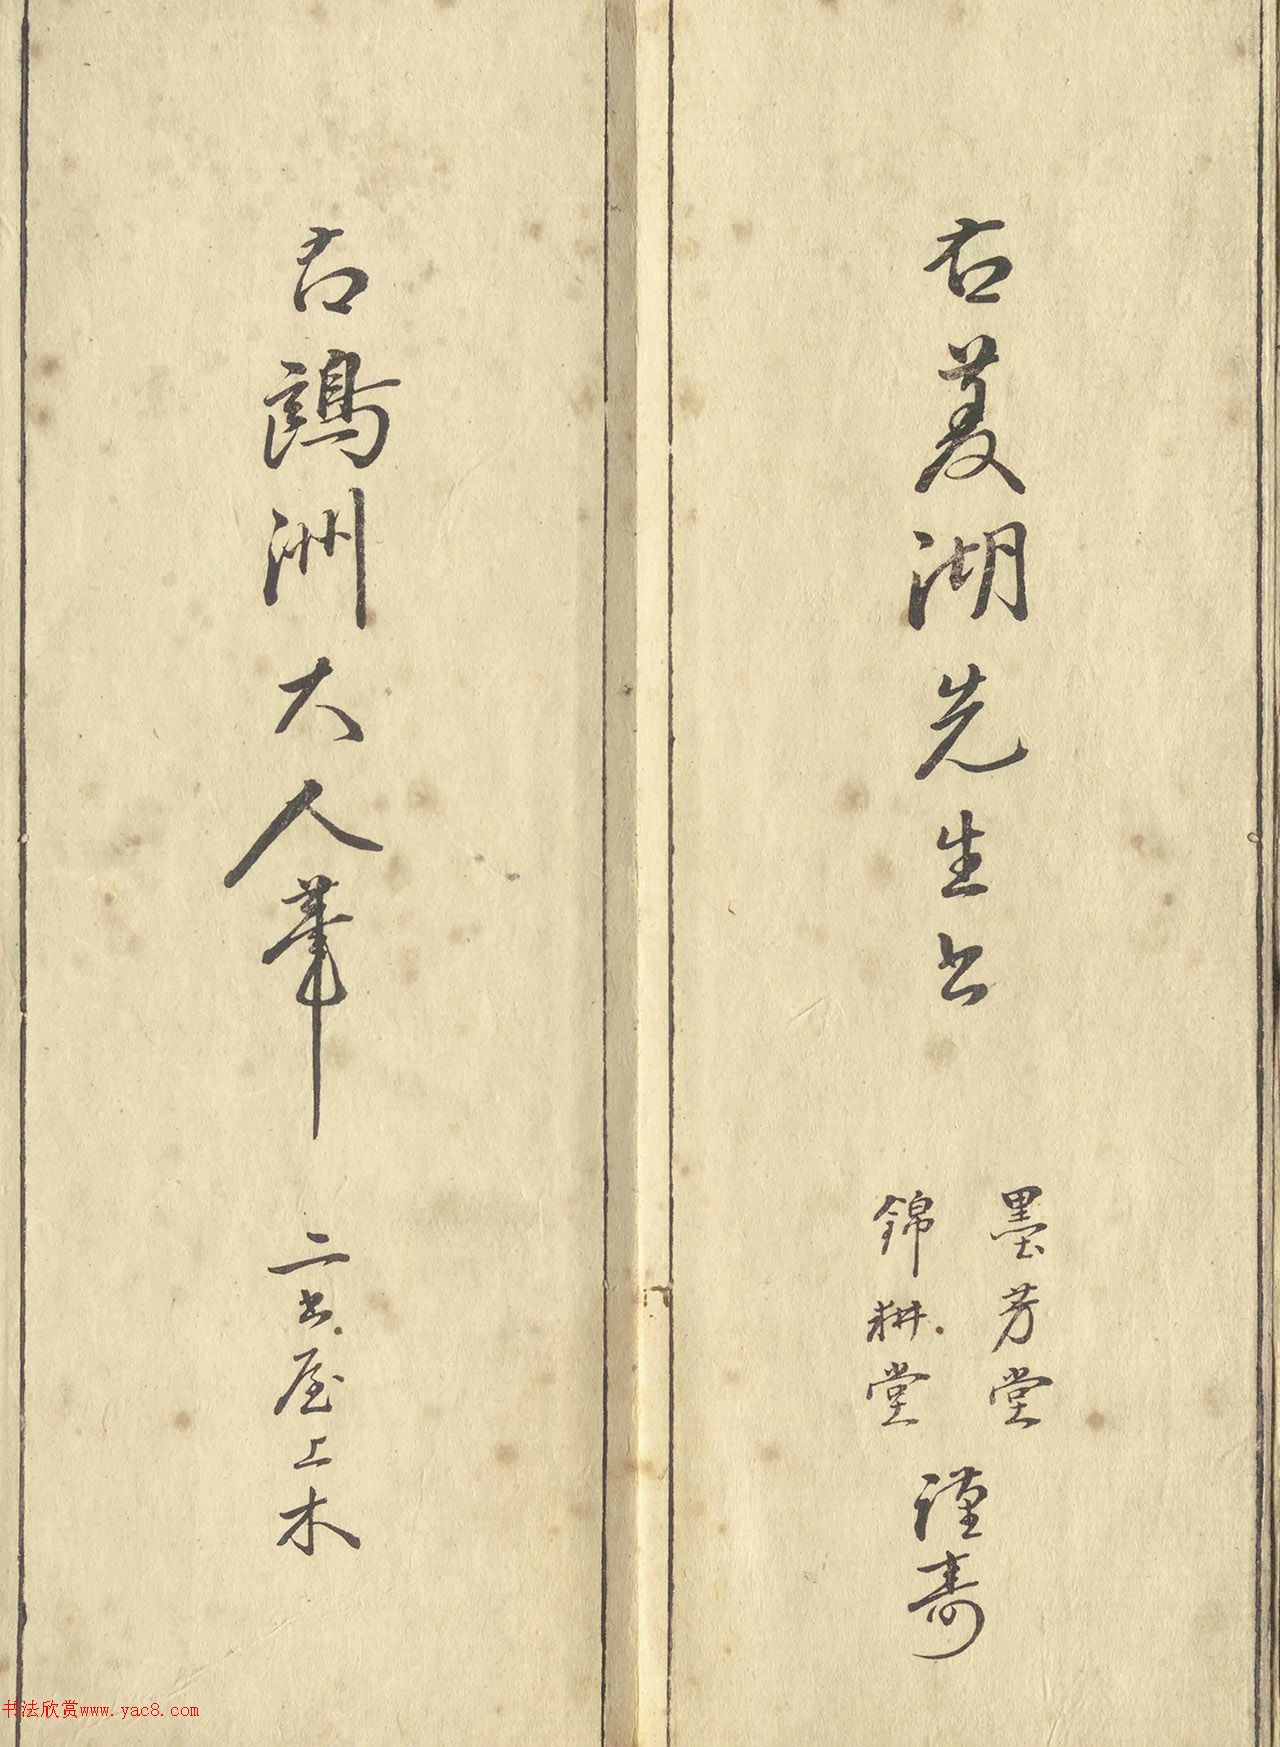 右菱湖先生書
墨芳堂
錦耕堂
謹壽
右鷗洲大人筆
二書屋上木
书法欣赏www.yac8.com